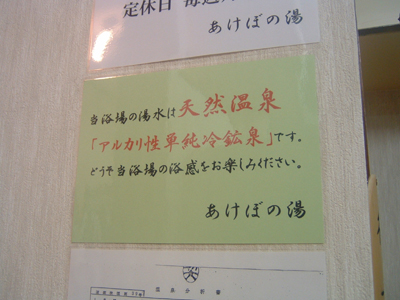 定休日 毎週
あけぼの湯
当浴場の湯水は天然温泉
「アルカリ性単純冷鉱泉」です。
どうぞ当浴場の浴感をお楽しみください。
あけぼの湯
温泉分析書